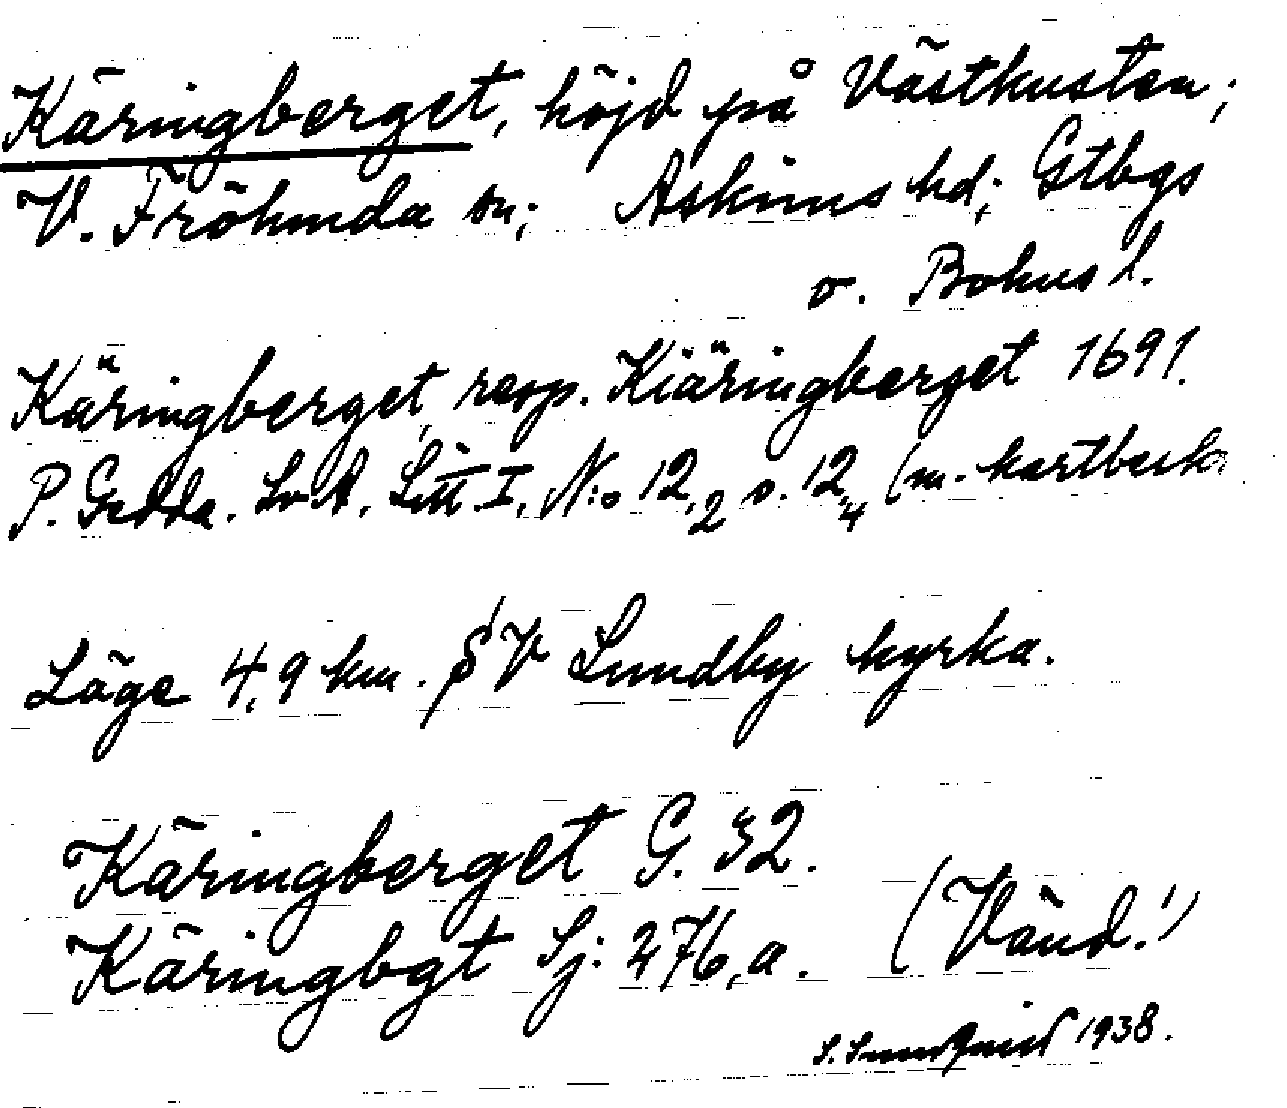 Käringberget, höjd på Västkusten;
V. Frölunda sn; Askims hd; Gtbgs
o. Bohus l.
Käringberget, resp. Kiäringberget 1691.
P. Gedda. SvA. Litt. I. N:o 12,2 o. 12,4 (m. kartbesk.
Läge 4,9 km. SV Lundby kyrka.
Käringberget G. 32.
Käringbgt Sj: 276,a. (Vänd!)
S. Sundquist 1938.